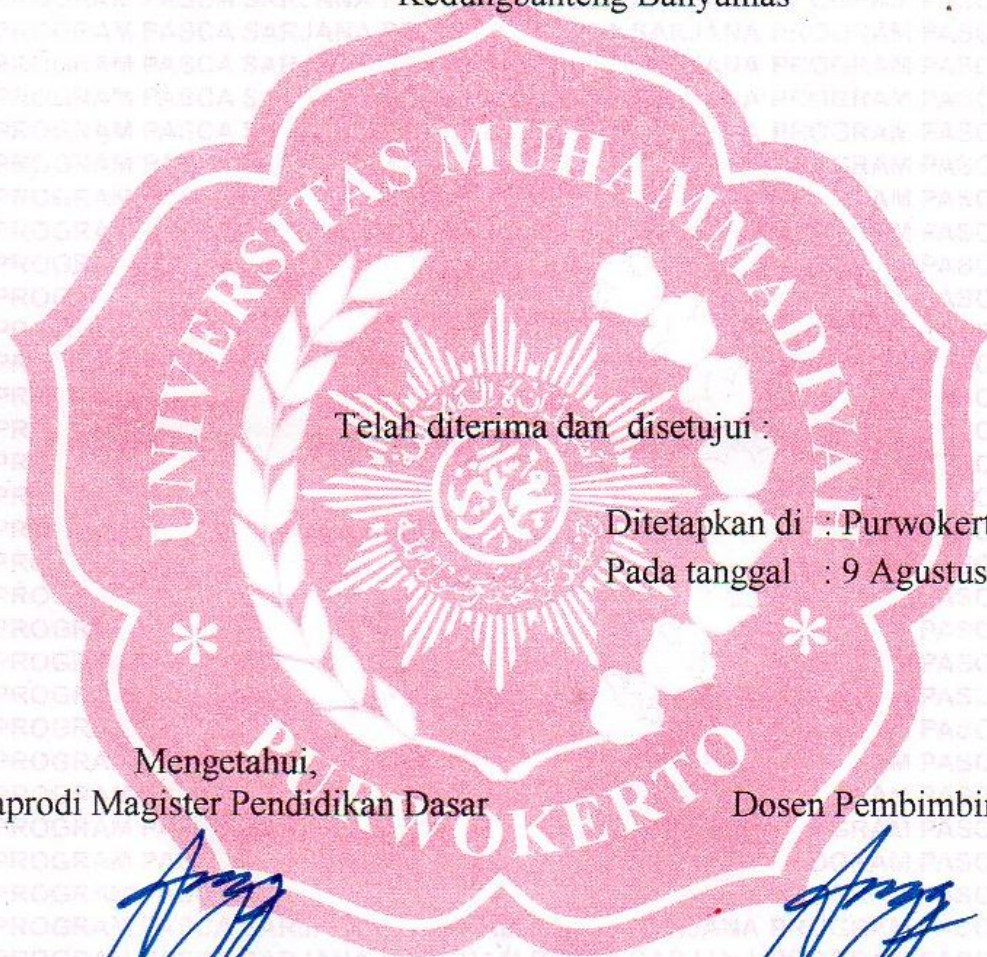 Kedungbanteng Banyumas
UNIVERSITAS MUHAMMADIYAH
PURWOKERTO
Telah diterima dan disetujui :
Ditetapkan di : Purwokert
Pada tanggal : 9 Agustus
Mengetahui,
aprodi Magister Pendidikan Dasar
Dosen Pembimbin
PROGRAM PASCA SARJANA